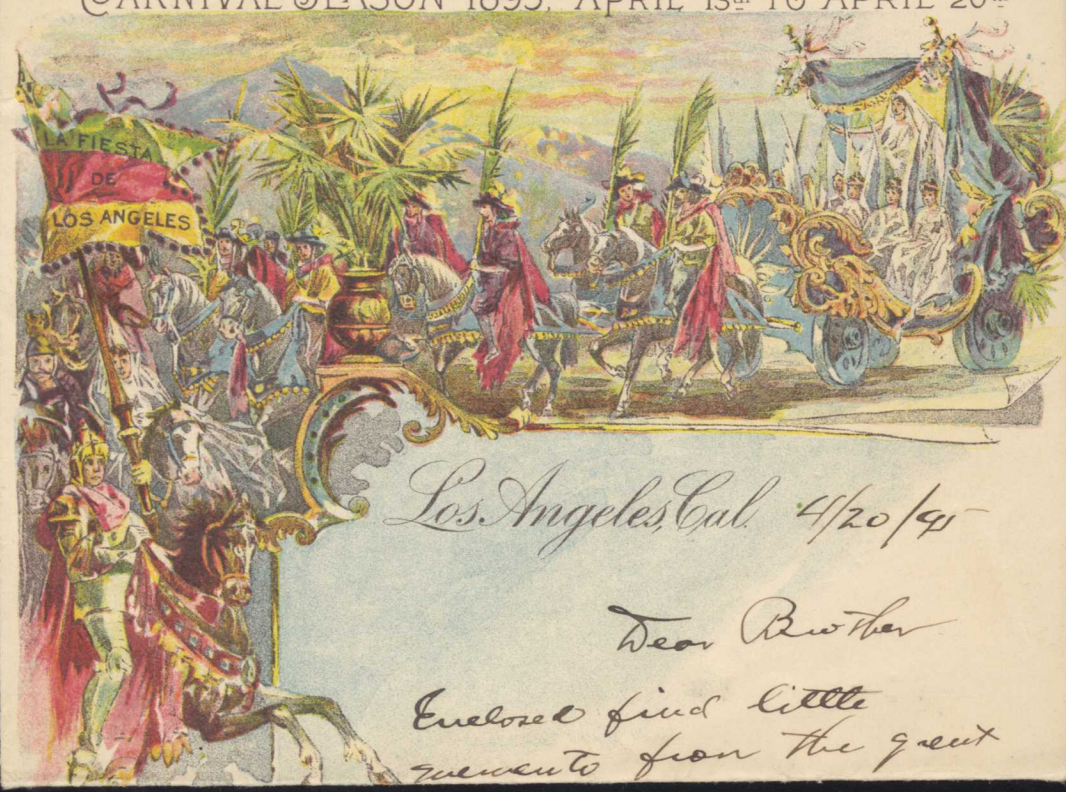 CARNIVAL SEASON 1895, APRIL 15th TO APRIL 20th
LA FIESTA
DE
LOS ANGELES
Los Angeles, Cal. 4/20/95
Dear Brother
Enclosed find little
memento from the great